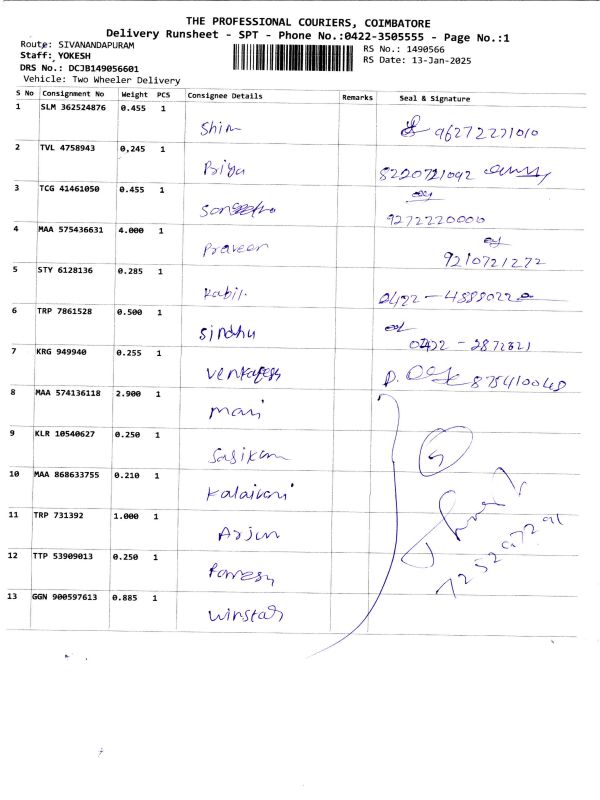 THE PROFESSIONAL COURIERS, COIMBATORE
Delivery Runsheet - SPT - Phone No.:0422-3505555 - Page No.:1
Route: SIVANANDAPURAM
Staff: YOKESH
DRS No.: DCJB149056601
Vehicle: Two Wheeler Delivery
RS No.: 1490566
RS Date: 13-Jan-2025
S No Consignment No Weight PCS Consignee Details Remarks Seal & Signature
1 SLM 362524876 0.455 1 Shim
2 TVL 4758943 0,245 1 Biya 8220721092
3 TCG 41461050 0.455 1 9272220000
4 MAA 575436631 4.000 1 Praveen 9210721272
5 STY 6128136 0.285 1 Kabil
6 TRP 7861528 0.500 1 Sindhu
7 KRG 949940 0.255 1 Venkatesh
8 MAA 574136118 2.900 1 Mari
9 KLR 10540627 0.250 1 Sasikam
10 MAA 868633755 0.210 1 Kalaivani
11 TRP 731392 1.000 1 Arjun
12 TTP 53909013 0.250 1
13 GGN 900597613 0.885 1 Winstar